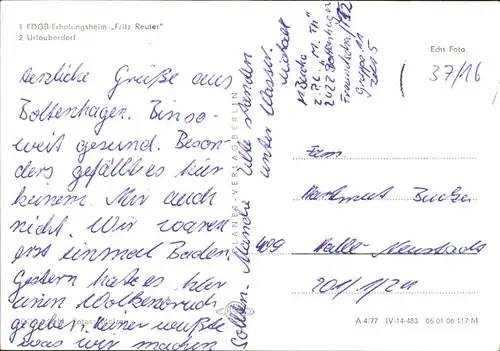 1 FDGB-Erholungsheim „Fritz Reuter"
2 Urlauberdorf
Herzliche Grüße aus
Boltenhagen. Bin so-
weit gesund. Beson-
ders gefällt es hier
keinem. Mir auch
nicht. Wir waren
erst einmal Baden.
Gestern hat es hier
einen Wolkenbruch
gegeben, keiner wußte
was wir machen
sollten. Manche Zelte standen
unter Wasser.
Michael
PLANET-VERLAG BERLIN
Z.P.L. „M. Th"
2022 Boltenhagen
Gruppe 11
Zelt 5
Echt Foto
37/16
Fam.
Hartmut
409 Halle-Neustadt
201/1/24
A 4/77 IV-14-483 06 01 06 117 M